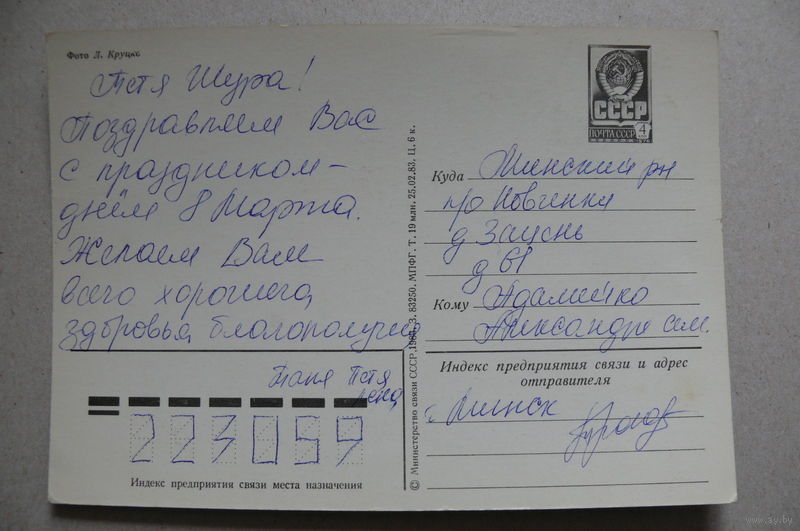 Фото Л. Круцко
Тётя Шура!
Поздравляем Вас
с праздником –
днём 8 Марта.
Желаем Вам
всего хорошего,
здоровья, благополучия
Таня Петя
Лена
Индекс предприятия связи места назначения
223059
© Министерство связи СССР, 198 З. 83250. МПФГ. Т. 19 млн. 25.02.83. Ц. 6 к.
СССР
ПОЧТА СССР 4
Куда Минский рн
п/о Новинки
д Зацень
д 61
Кому Адамейко
Александре Сем.
Индекс предприятия связи и адрес
отправителя
г. Минск
www.ay.by